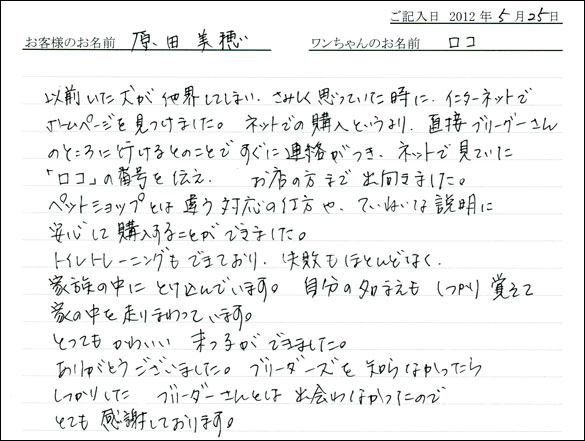 ご記入日 2012年5月25日
お客様のお名前 原田美穂 ワンちゃんのお名前 ロコ
以前いた犬が他界してしまい、さみしく思っていた時に、インターネットで
ホームページを見つけました。ネットでの購入というより、直接ブリーダーさん
のところに行けるとのことですぐに連絡がつき、ネットで見ていた
「ロコ」の番号を伝え、お店の方まで出向きました。
ペットショップとは違う対応の仕方や、ていねいな説明に
安心して購入することができました。
トイレトレーニングもできており、失敗もほとんどなく、
家族の中にとり込んでいます。自分の名まえもしっかり覚えて
家の中を走りまわっています。
とってもかわいい末っ子ができました。
ありがとうございました。ブリーダーズを知らなかったら
しっかりしたブリーダーさんとは出会わなかったので
とても感謝しております。